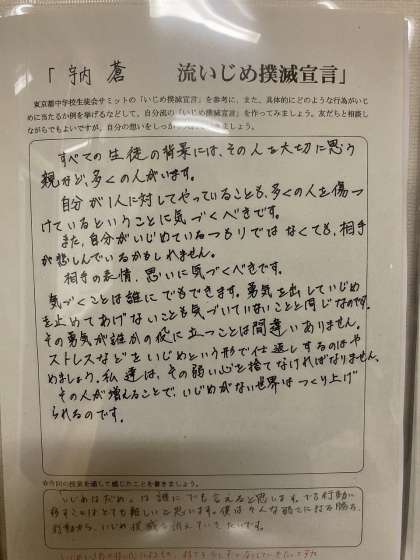 「宇納 蒼 流いじめ撲滅宣言」
東京都中学校生徒会サミットの「いじめ撲滅宣言」を参考に、また、具体的にどのような行為がいじ
めに当たるか例を挙げるなどして、自分流の「いじめ撲滅宣言」を作ってみましょう。友だちと相談し
ながらでもよいですが、自分の想いをしっかり
ましょう。
すべての生徒の背景には、その人を大切に思う
親など、多くの人がいます。
自分が1人に対してやっていることも、多くの人を傷つ
けているということに気づくべきです。
また、自分がいじめているつもりではなくても、相手
が悲しんでいるかもしれません。
相手の表情、思いに気づくべきです。
気づくことは誰にでもできます。勇気を出していじめ
を止めてあげないことも気づいていないことと同じなのです。
その勇気が誰かの役に立つことは間違いありません。
ストレスなどをいじめという形で仕返しするのはや
めましょう。私達は、その弱い心を捨てなければなりません。
その人が増えることで、いじめがない世界はつくり上げ
られるのです。
☆今回の授業を通して感じたことを書きましょう。
「いじめはだめ」は誰にでも言えると思います。でも行動に
移すことはとても難しいと思います。僕は
行動から、いじめ撲滅を